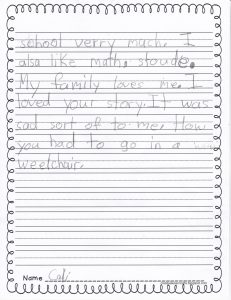 school verry much. I
alsa like math. stoude.
My family loves me. I
loved your story. It was
sad sort of to me. How
you had to go in a
weelchair.
Name Cali